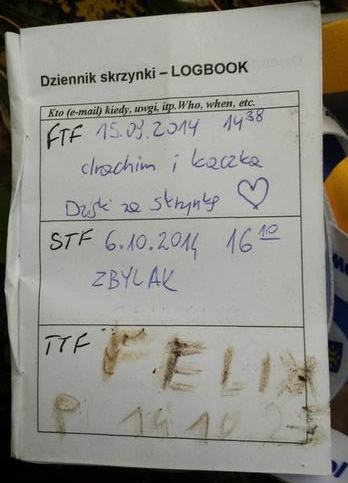 Dziennik skrzynki – LOGBOOK
Kto (e-mail) kiedy, uwgi, itp. Who, when, etc.
FTF 15.09.2014 14 38
drachim i kaczka
Dzięki za skrzynkę
STF 6.10.2014 16 10
ZBYLAK
TTF FELIX
P 14 10